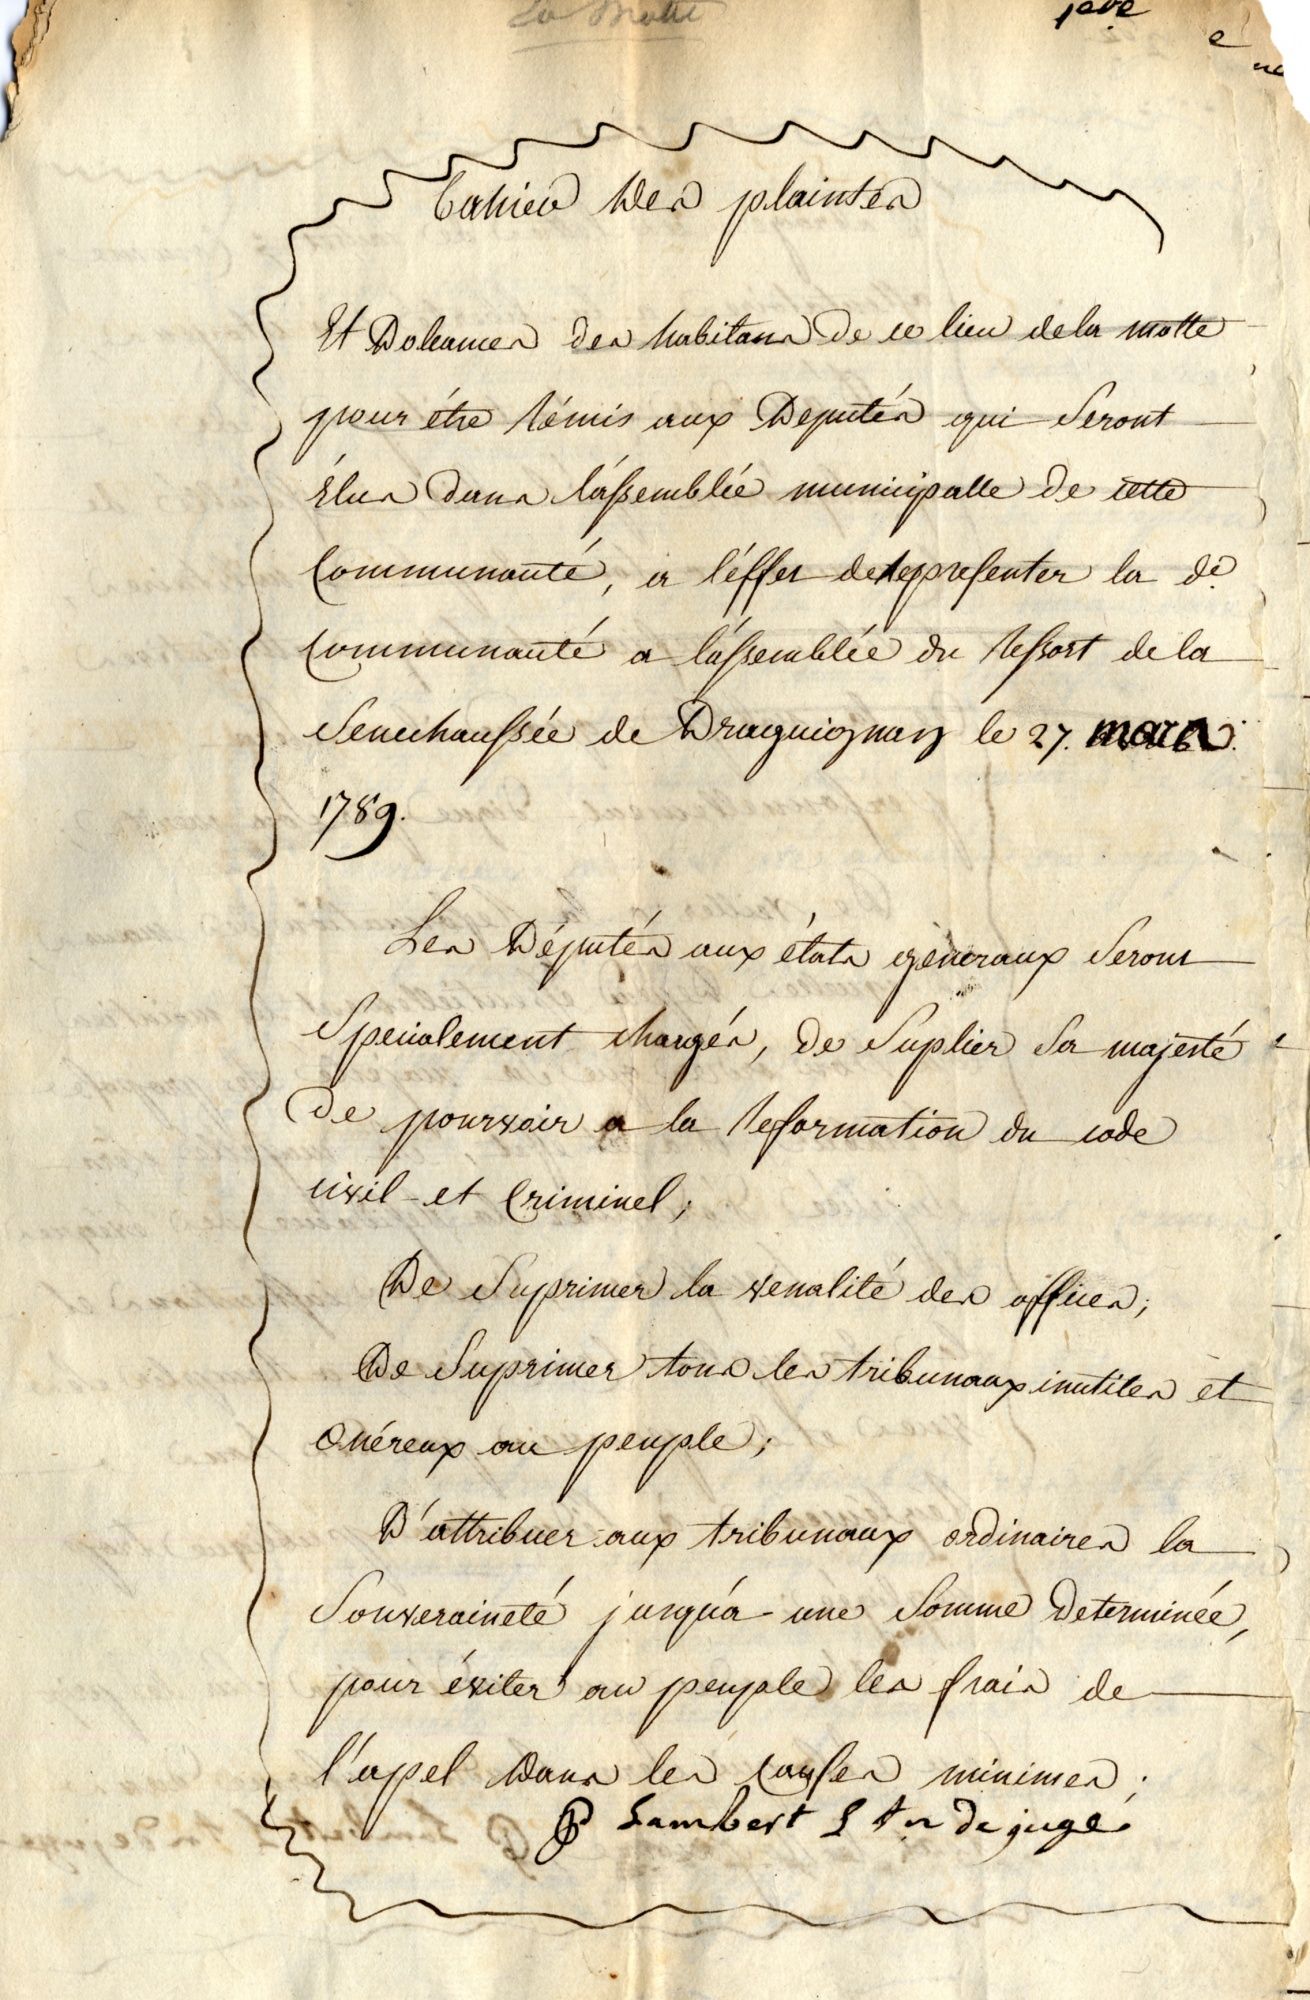 La Motte
Cahier des plaintes
Et Doleances des habitans de ce lieu de la motte
pour étre rémis aux Deputés qui Seront
élus dans l'ássemblée municipalle de cette
Communauté, a l'éffet de representer la de.
Communauté a l'ássemblée du ressort de la
Senechaussée de Draguignan le 27. mars
1789.
Les Députés aux états géneraux Seront
Specialement chargés, de Suplier Sa majesté
de pourvoir a la reformation du code
civil et Criminel;
De Suprimer la venalité des offices;
De Suprimer tous les tribunaux inutiles et
onéreux au peuple;
D'attribuer aux tribunaux ordinaires la
Souveraineté jusqu'á une Somme determinée,
pour éviter au peuple les frais de
l'apel dans les causes minimes;
Lambert Lt de juge